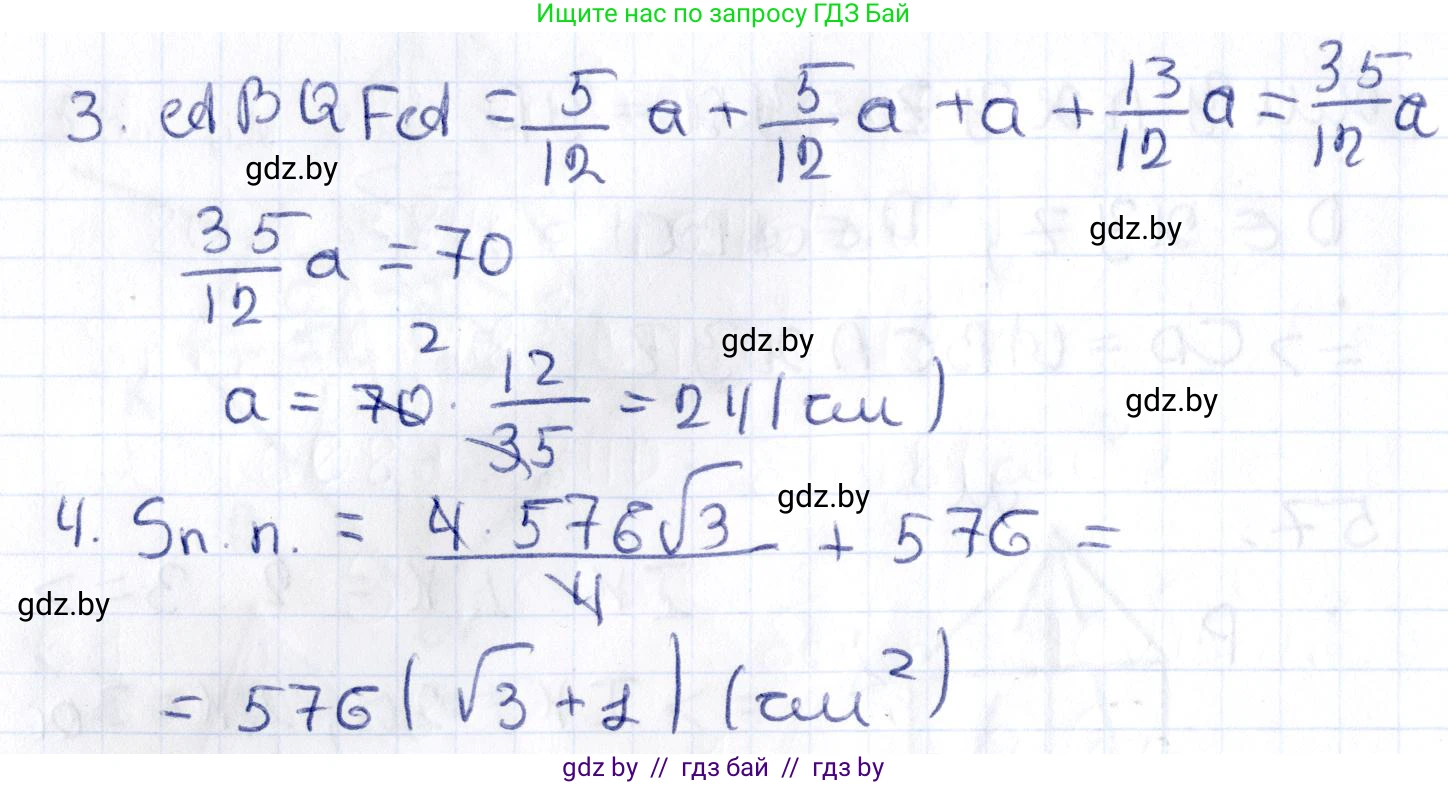 Ищите нас по запросу ГДЗ Бай
3. cd BQFcd = 5/12 a + 5/12 a + a + 13/12 a = 35/12 a
gdz.by
gdz.by
35/12 a = 70
gdz.by
a = 70 2 · 12/35 = 24 (см)
gdz.by
gdz.by
4. Sп.п. = 4·576√3/4 + 576 =
gdz.by
= 576(√3+1) (см²)
gdz by // гдз бай // гдз by